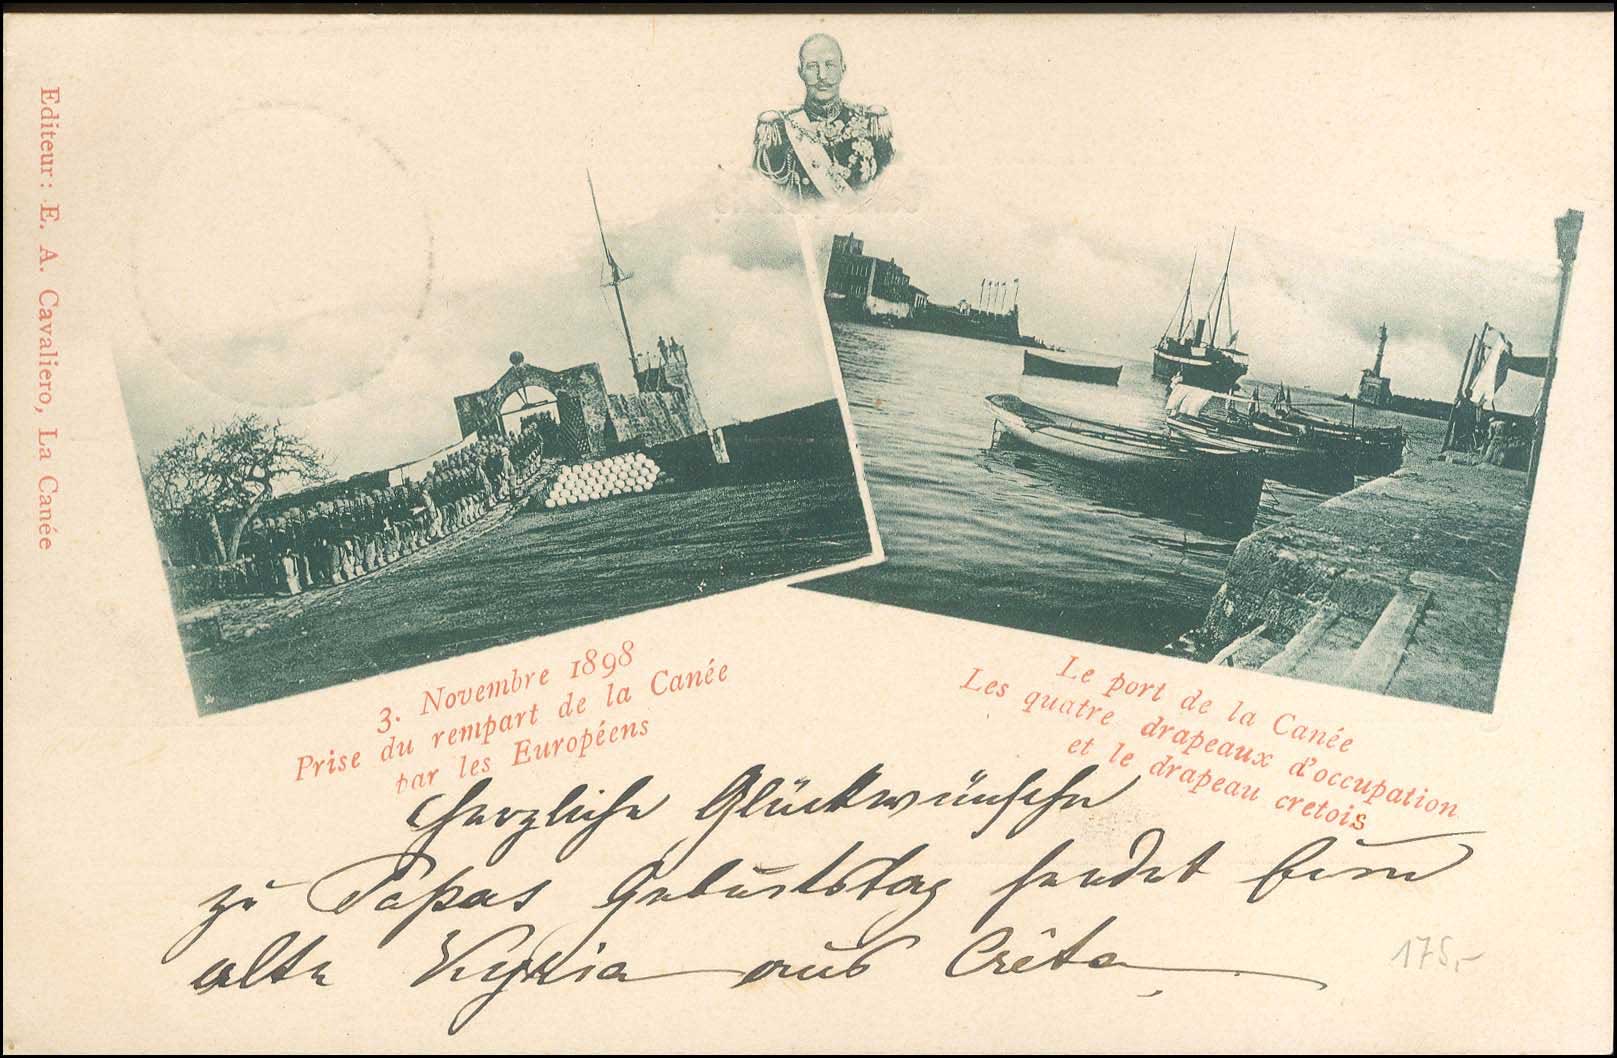 Editeur: E. A. Cavaliero, La Canée
3. Novembre 1898
Prise du rempart de la Canée
par les Européens
Le port de la Canée
Les quatre drapeaux d'occupation
et le drapeau cretois
Herzliche Glückwünsche
zu Papas Geburtstag sendet
alte Kyria aus Crêta
175,-